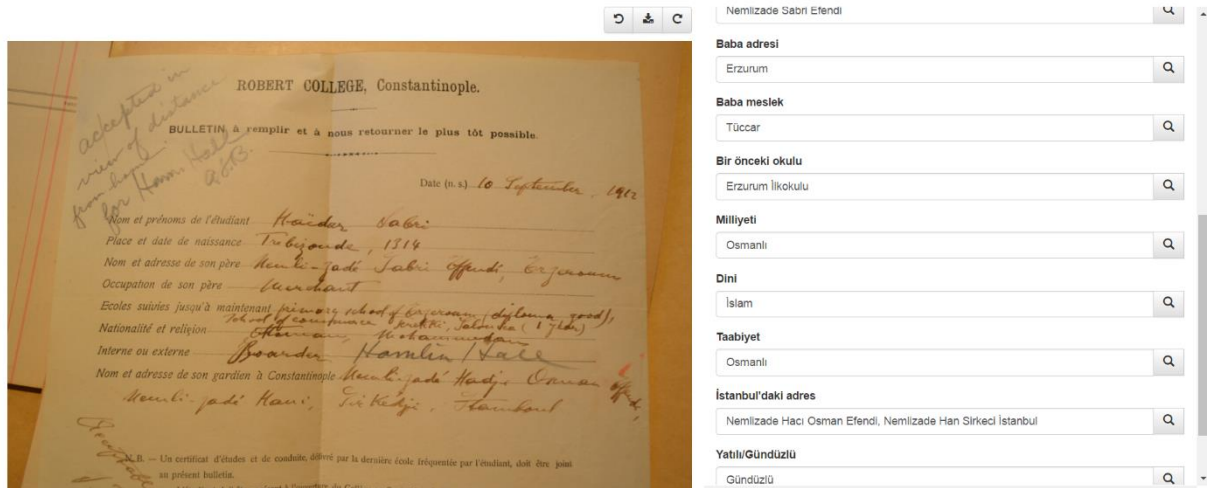 ROBERT COLLEGE, Constantinople.
BULLETIN à remplir et à nous retourner le plus tôt possible.
accepted in
view of distance
from home
for Haml. Hall
Date (n. s.) 10 September, 1912
Nom et prénoms de l'étudiant Haïdar Sabri
Place et date de naissance Trebizonde, 1314
Nom et adresse de son père Nemli-zadé Sabri Effendi, Erzeroum
Occupation de son père Merchant
Ecoles suivies jusqu'à maintenant primary school of Erzeroum (diploma good),
School of commerce Salonica (1 year)
Nationalité et religion Ottoman, Mohammedan
Interne ou externe Boarder Hamlin Hall
Nom et adresse de son gardien à Constantinople Nemli-zadé Hadji Osman Effendi,
Nemli-zadé Hani, Sirkédji, Stamboul
N.B. — Un certificat d'études et de conduite, délivré par la dernière école fréquentée par l'étudiant, doit être joint
au présent bulletin.
Nemlizade Sabri Efendi
Baba adresi
Erzurum
Baba meslek
Tüccar
Bir önceki okulu
Erzurum İlkokulu
Milliyeti
Osmanlı
Dini
İslam
Taabiyet
Osmanlı
İstanbul'daki adres
Nemlizade Hacı Osman Efendi, Nemlizade Han Sirkeci İstanbul
Yatılı/Gündüzlü
Gündüzlü